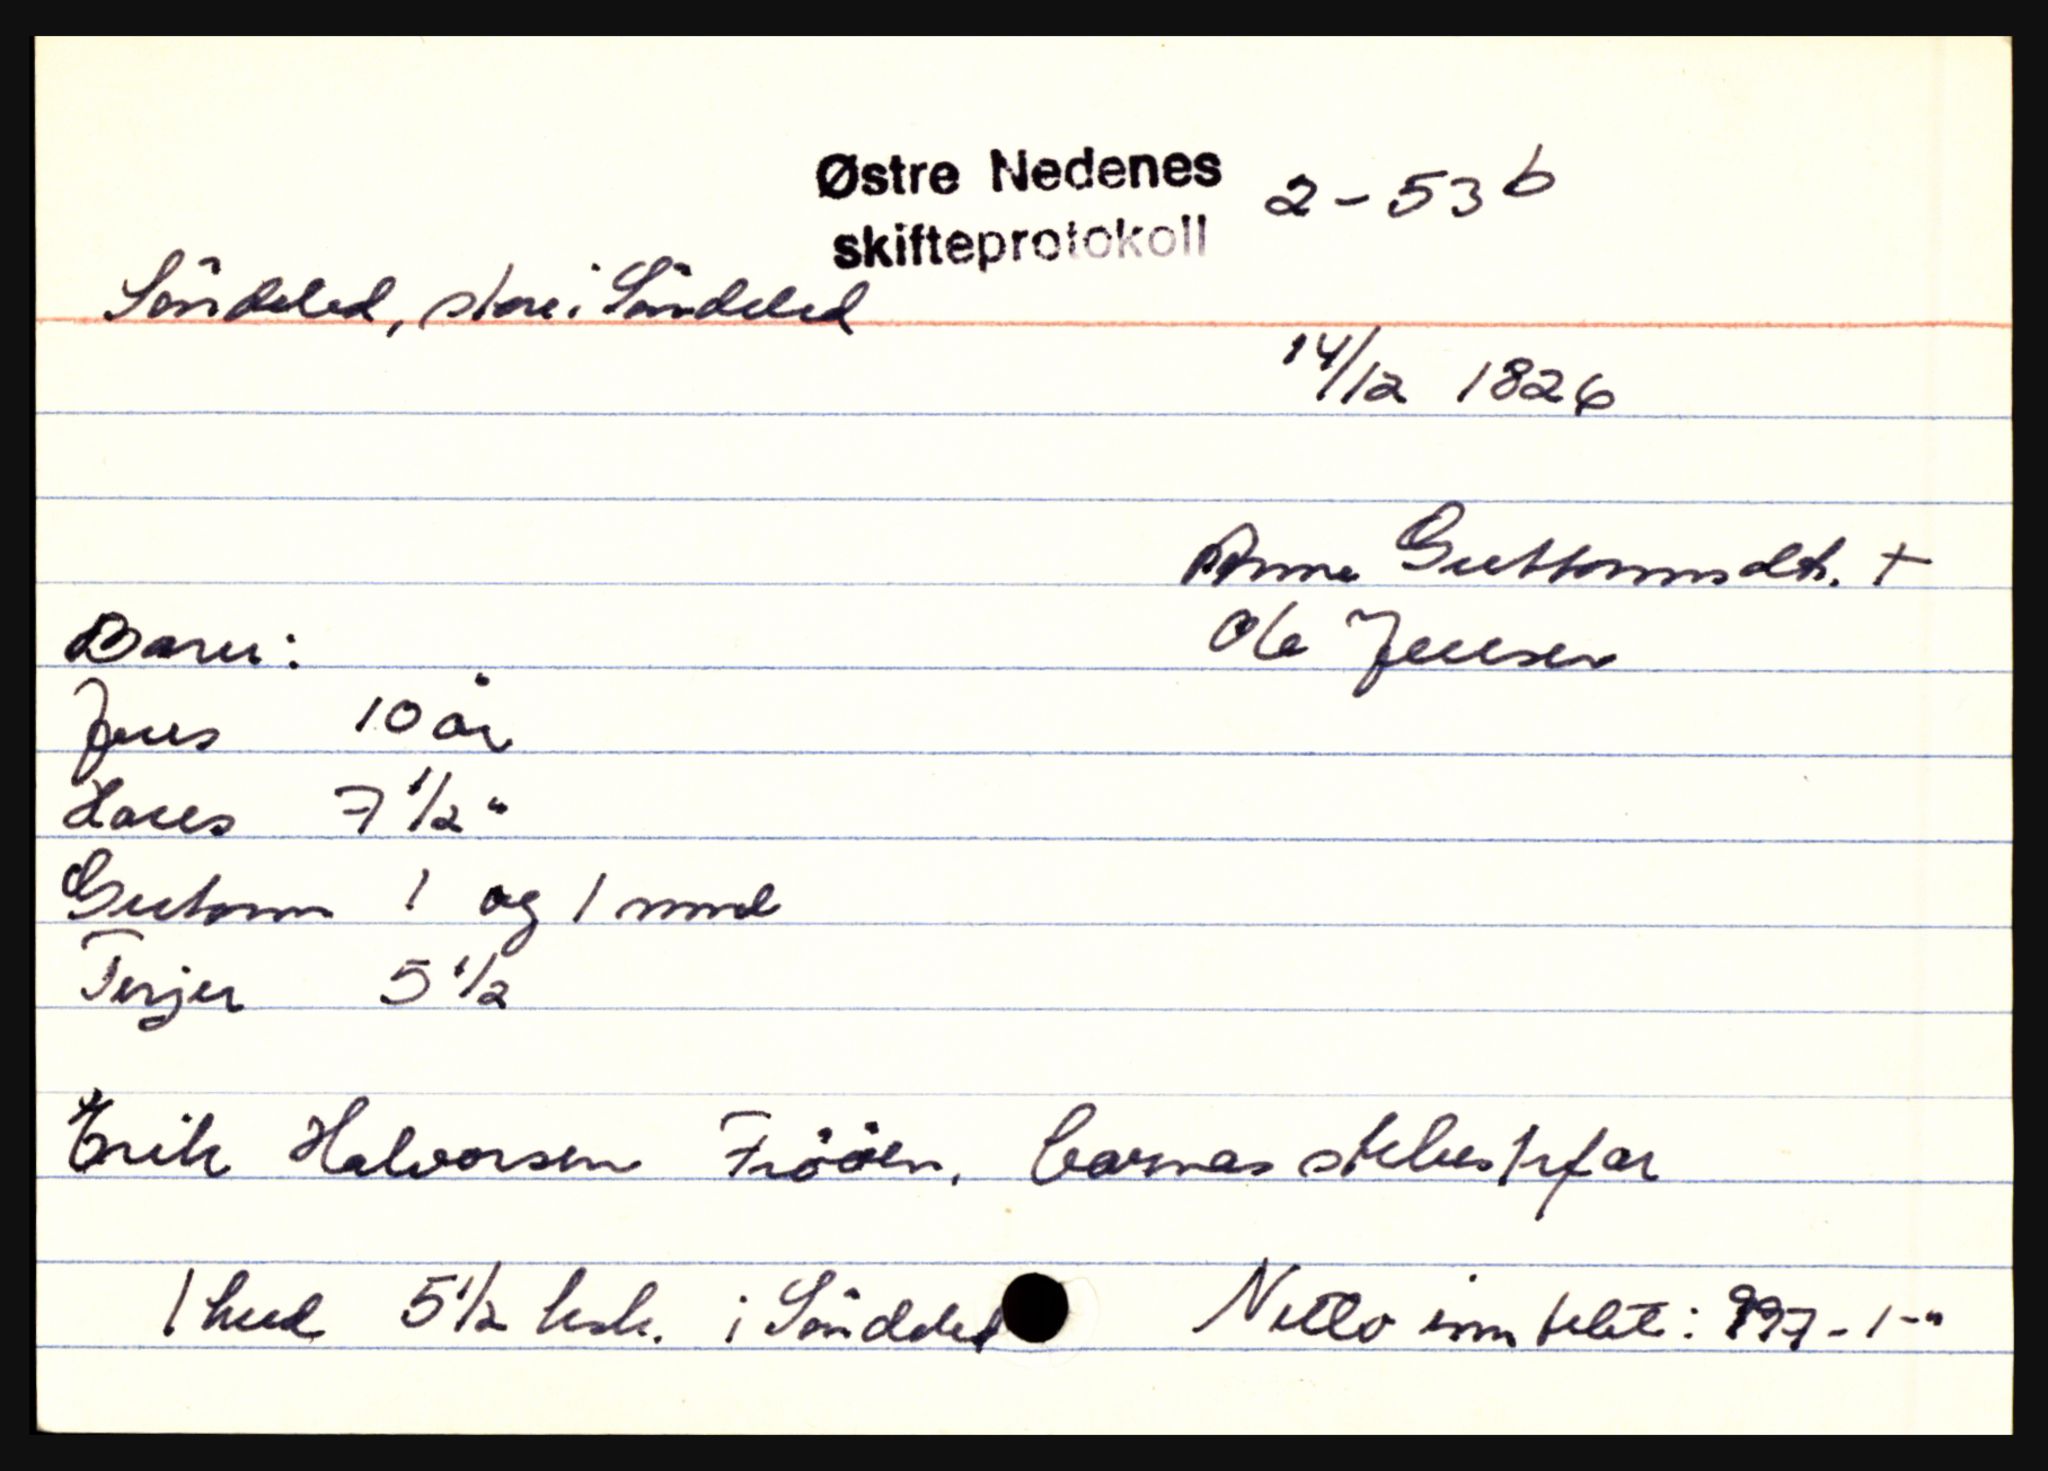 Østre Nedenes 2 - 53 b
skifteprotokoll
Söndeled, store i Söndeled
14/12 1826
Anne Guttormsdt. +
Ole Jensen
Barn:
Jens 10 år
Hans 7 1/2 "
Gutorm 1 og 1 mnd
Terjer 5 1/2
Erik Halvorsen Frööen, barnas stebestefar
1 hud 5 1/2 ksk. i Sönddeled Netto inntekt: 997 - 1 - "